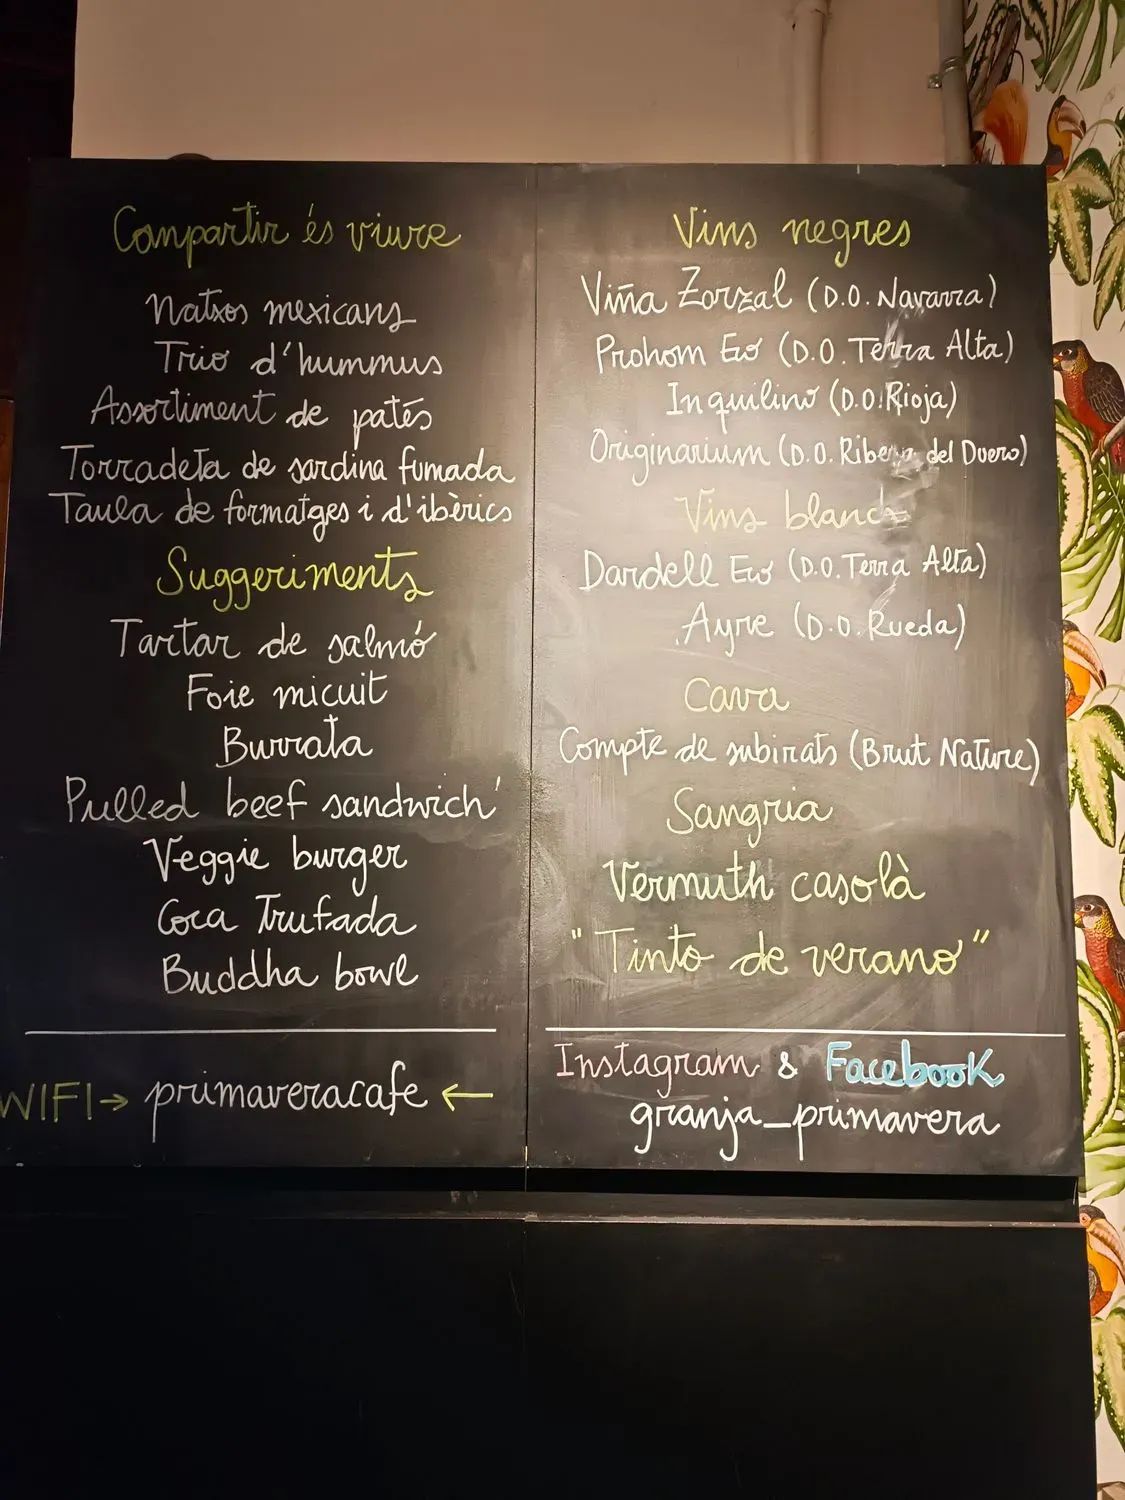 Compartir és viure
Natxos mexicans
Trio d'hummus
Assortiment de patés
Torradeta de sardina fumada
Taula de formatges i d'ibèrics
Suggeriments
Tartar de salmó
Foie micuit
Burrata
Pulled beef sandwich'
Veggie burger
Coca Trufada
Buddha bowl
WIFI→ primaveracafe ←
Vins negres
Viña Zorzal (D.O. Navarra)
Prohom Eco (D.O. Terra Alta)
Inquilino (D.O. Rioja)
Originarium (D.O. Ribera del Duero)
Vins blancs
Dardell Eco (D.O. Terra Alta)
Ayre (D.O. Rueda)
Cava
Compte de subirats (Brut Nature)
Sangria
Vermuth casolà
"Tinto de verano"
Instagram & Facebook
granja_primavera